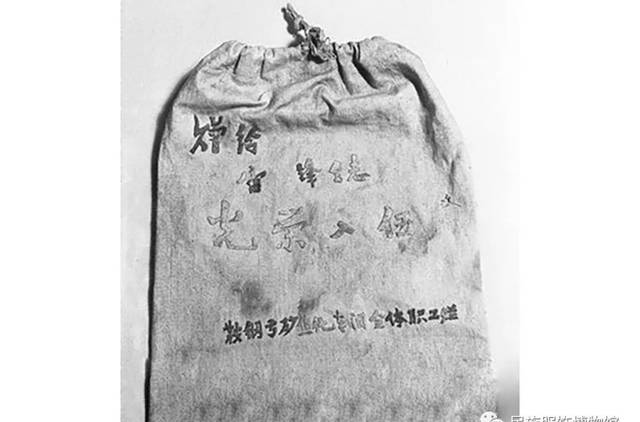 赠给
雷锋仝志
光荣入伍
鞍钢弓矿焦化車间全体职工赠
民族服饰博物馆